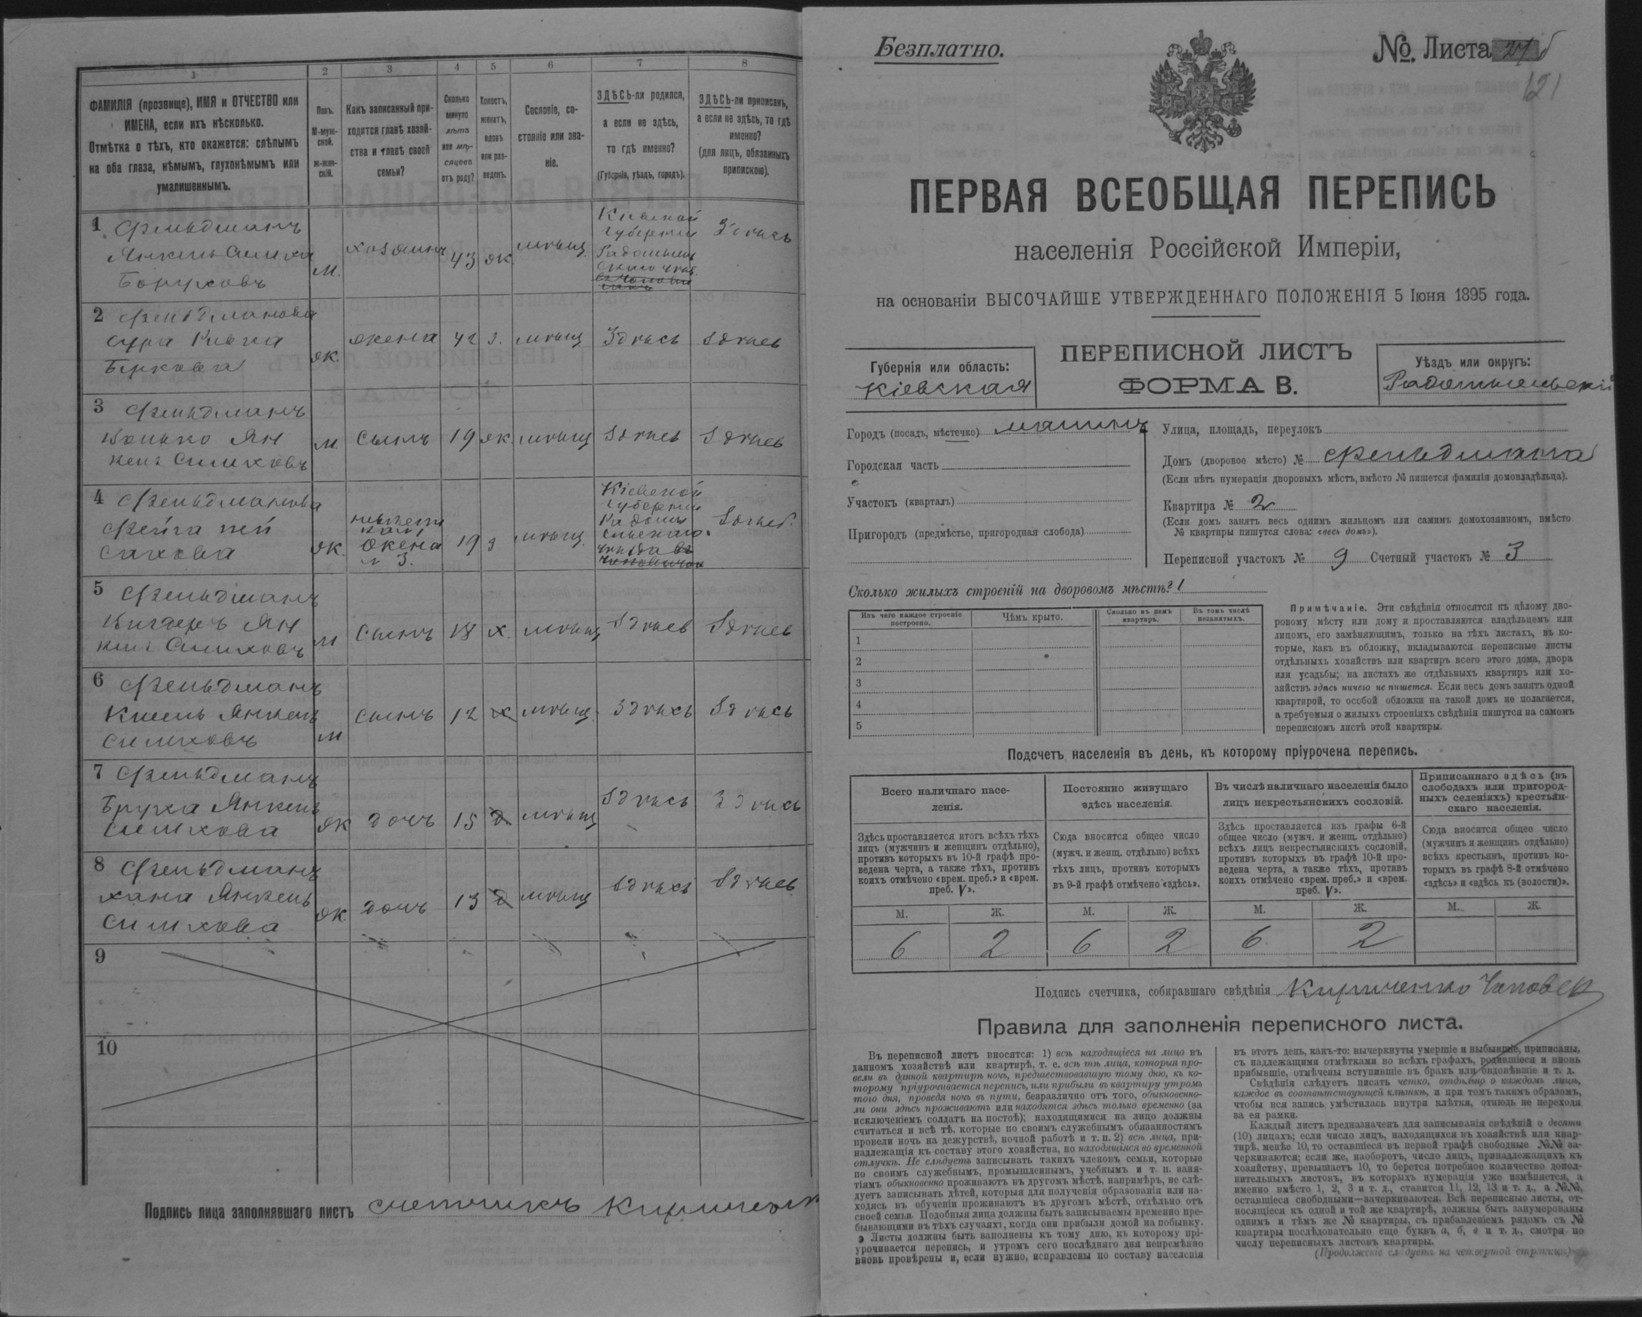 1
2
3
4
5
6
7
8
ФАМИЛІЯ (прозвище), ИМЯ и ОТЧЕСТВО или
ИМЕНА, если ихъ нѣсколько.
Отмѣтка о тѣхъ, кто окажется: слѣпымъ
на оба глаза, нѣмымъ, глухонѣмымъ или
умалишеннымъ.
Полъ.
М-муж-
ской.
ж-жен-
скій.
Какъ записанный при-
ходится главѣ хозяй-
ства и главѣ своей
семьи?
Сколько
минуло
лѣтъ
или мѣ-
сяцевъ
отъ роду?
Холостъ,
женатъ,
вдовъ
или раз-
веденъ.
Сословіе, со-
стояніе или зва-
ніе.
ЗДѢСЬ-ли родился,
а если не здѣсь,
то гдѣ именно?
(Губернія, уѣздъ, городъ).
ЗДѢСЬ-ли приписанъ,
а если не здѣсь, то гдѣ
именно?
(для лицъ, обязанныхъ
припискою).
1 Фельдманъ
Боруховъ
М.
хозяинъ
43
ж
мѣщ
Кіевской
губерніи
Здѣсь
2 Фельдманова
Сура
Беркова
ж.
жена
42
з.
мѣщ
Здѣсь
Здѣсь
3 Фельдманъ
М
сынъ
19
ж
мѣщ
Здѣсь
Здѣсь
4 Фельдманова
Фейга
ж.
жена
№ 3.
19
з
мѣщ.
Кіевской
губерніи
Здѣсь.
5 Фельдманъ
М
сынъ
18
х.
мѣщ
Здѣсь
Здѣсь
6 Фельдманъ
М
сынъ
12
х
мѣщ
Здѣсь
Здѣсь
7 Фельдманъ
Бруха Янкель
ж
дочь
15
д
мѣщ
Здѣсь
Здѣсь
8 Фельдманъ
хана Янкель
ж
дочь
13
д
мѣщ
Здѣсь
Здѣсь
9
10
Подпись лица заполнявшаго листъ счетчикъ
Безплатно.
№. Листа
121
ПЕРВАЯ ВСЕОБЩАЯ ПЕРЕПИСЬ
населенія Россійской Имперіи,
на основаніи ВЫСОЧАЙШЕ УТВЕРЖДЕННАГО ПОЛОЖЕНІЯ 5 Іюня 1895 года.
Губернія или область:
Кіевская
ПЕРЕПИСНОЙ ЛИСТЪ
ФОРМА В.
Уѣздъ или округъ:
Радомысльскій
Городъ (посадъ, мѣстечко) Малинъ
Городская часть
Участокъ (кварталъ)
Пригородъ (предмѣстье, пригородная слобода)
Улица, площадь, переулокъ
Домъ (дворовое мѣсто) № Фельдмана
(Если нѣтъ нумераціи дворовыхъ мѣстъ, вмѣсто № пишется фамилія домовладѣльца).
Квартира № 2
(Если домъ занятъ весь однимъ жильцомъ или самимъ домохозяиномъ, вмѣсто
№ квартиры пишутся слова: «весь домъ»).
Переписной участокъ № 9 Счетный участокъ № 3
Сколько жилыхъ строеній на дворовомъ мѣстѣ? 1
Изъ чего каждое строеніе
построено.
Чѣмъ крыто.
Сколько въ немъ
квартиръ.
Въ томъ числѣ
незанятыхъ.
1
2
3
4
5
Примѣчаніе. Эти свѣдѣнія относятся къ цѣлому дво-
ровому мѣсту или дому и проставляются владѣльцемъ или
лицомъ, его замѣняющимъ, только на тѣхъ листахъ, въ ко-
торые, какъ въ обложку, вкладываются переписные листы
отдѣльныхъ хозяйствъ или квартиръ всего этого дома, двора
или усадьбы; на листахъ же отдѣльныхъ квартиръ или хо-
зяйствъ здѣсь ничего не пишется. Если весь домъ занятъ одной
квартирой, то особой обложки на такой домъ не полагается,
а требуемыя о жилыхъ строеніяхъ свѣдѣнія пишутся на самомъ
переписномъ листѣ этой квартиры.
Подсчетъ населенія въ день, къ которому пріурочена перепись.
Всего наличнаго насе-
ленія.
Постоянно живущаго
здѣсь населенія.
Въ числѣ наличнаго населенія было
лицъ некрестьянскихъ сословій.
Приписаннаго здѣсь (въ
слободахъ или пригород-
ныхъ селеніяхъ) крестьян-
скаго населенія.
Здѣсь проставляется итогъ всѣхъ тѣхъ
лицъ (мужчинъ и женщинъ отдѣльно),
противъ которыхъ въ 10-й графѣ про-
ведена черта, а также тѣхъ, противъ
коихъ отмѣчено «врем. преб.» и «врем.
преб. V».
Сюда вносится общее число
(мужч. и женщ. отдѣльно) всѣхъ
тѣхъ лицъ, противъ которыхъ
въ 9-й графѣ отмѣчено «здѣсь».
Здѣсь проставляется изъ графы 6-й
общее число (мужч. и женщ. отдѣльно)
всѣхъ лицъ некрестьянскихъ сословій,
противъ которыхъ въ графѣ 10-й про-
ведена черта, а также тѣхъ, противъ
коихъ отмѣчено «врем. преб.» и «врем.
преб. V».
Сюда вносится общее число
(мужчинъ и женщинъ отдѣльно)
всѣхъ крестьянъ, противъ ко-
торыхъ въ графѣ 8-й отмѣчено
«здѣсь» и «здѣсь къ (волости)».
М. Ж. М. Ж. М. Ж. М. Ж.
6 2 6 2 6 2
Подпись счетчика, собиравшаго свѣдѣнія
Правила для заполненія переписного листа.
Въ переписной листъ вносятся: 1) всѣ находящіеся на лицо въ
данномъ хозяйствѣ или квартирѣ, т. е. всѣ тѣ лица, которыя про-
вели въ данной квартирѣ ночь, предшествовавшую тому дню, къ ко-
торому пріурочивается перепись, или прибыли въ квартиру утромъ
того дня, проведя ночь въ пути, безразлично отъ того, обыкновенно-
ли они здѣсь проживаютъ или находятся здѣсь только временно (за
исключеніемъ солдатъ на постоѣ); находящимися на лицо должны
считаться и всѣ тѣ, которые по своимъ служебнымъ обязанностямъ
провели ночь на дежурствѣ, ночной работѣ и т. п. 2) всѣ лица, при-
надлежащія къ составу этого хозяйства, но находящіяся во временной
отлучкѣ. Не слѣдуетъ записывать такихъ членовъ семьи, которые
по своимъ служебнымъ, промышленнымъ, учебнымъ и т. п. заня-
тіямъ обыкновенно проживаютъ въ другомъ мѣстѣ, напримѣръ, не слѣ-
дуетъ записывать дѣтей, которыя для полученія образованія или на-
ходясь въ обученіи проживаютъ въ другомъ мѣстѣ, отдѣльно отъ
своей семьи. Подобныя лица должны быть записываемы временно пре-
бывающими въ тѣхъ случаяхъ, когда они прибыли домой на побывку.
Листы должны быть заполнены къ тому дню, къ которому прі-
урочивается перепись, и утромъ сего послѣдняго дня непремѣнно
вновь провѣрены и, если нужно, исправлены по составу населенія
въ этотъ день, какъ-то: вычеркнуты умершіе и выбывшіе, приписаны,
съ надлежащими отмѣтками во всѣхъ графахъ, родившіеся и вновь
прибывшіе, отмѣчены вступившіе въ бракъ или овдовѣвшіе и т. д.
Свѣдѣнія слѣдуетъ писать четко, отдѣльно о каждомъ лицѣ,
каждое въ соотвѣтствующей клѣткѣ, и при томъ такимъ образомъ,
чтобы вся запись умѣстилась внутри клѣтки, отнюдь не переходя
за ея рамки.
Каждый листъ предназначенъ для записыванія свѣдѣній о десяти
(10) лицахъ; если число лицъ, находящихся въ хозяйствѣ или квар-
тирѣ, менѣе 10, то оставшіеся въ первой графѣ свободные №№ за-
черкиваются; если же, наоборотъ, число лицъ, принадлежащихъ къ
хозяйству, превышаетъ 10, то берется потребное количество допол-
нительныхъ листовъ, въ которыхъ нумерація уже измѣняется, а
именно вмѣсто 1, 2, 3 и т. д., ставится 11, 12, 13 и т. д., а №№,
оставшіеся свободными—зачеркиваются. Всѣ переписные листы, от-
носящіеся къ одной и той же квартирѣ, должны быть занумерованы
однимъ и тѣмъ же № квартиры, съ прибавленіемъ рядомъ съ №
квартиры послѣдовательно еще буквъ а, б, в и т. д., смотря по
числу переписныхъ листовъ квартиры.
(Продолженіе слѣдуетъ на четвертой страницѣ)